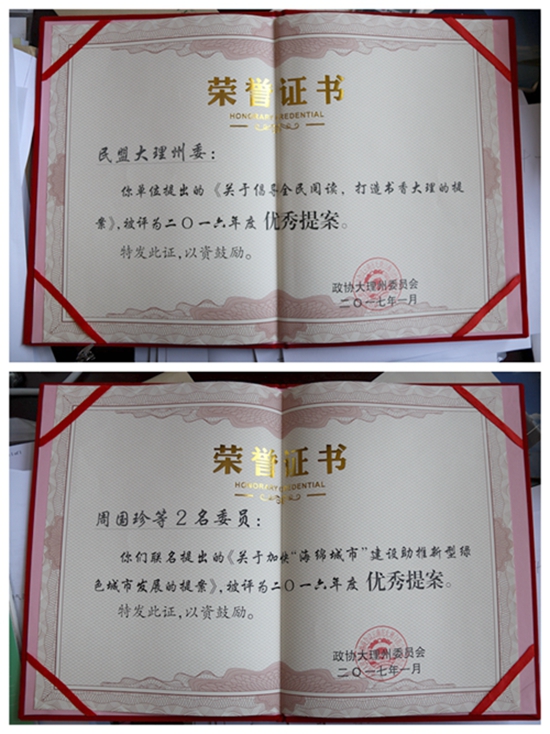 荣誉证书
HONORARY CREDENTIAL
民盟大理州委：
你单位提出的《关于倡导全民阅读，打造书香大理的提
案》，被评为二〇一六年度 优秀提案。
特发此证，以资鼓励。
政协大理州委员会
二〇一七年一月
荣誉证书
HONORARY CREDENTIAL
周国珍等2名委员：
你们联名提出的《关于加快“海绵城市”建设助推新型绿
色城市发展的提案》，被评为二〇一六年度 优秀提案。
特发此证，以资鼓励。
政协大理州委员会
二〇一七年一月